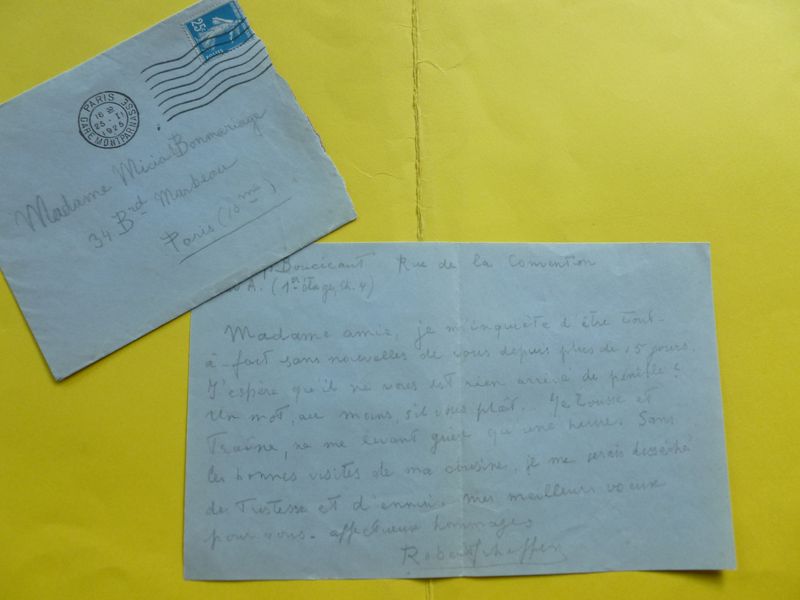 25c
PARIS
GARE MONTPARNASSE
1925
Madame Micia Bonmariage
34 Brd Marbeau
Paris (16me)
Boucicaut Rue de la Convention
A. (1er étage, ch. 4)
Madame amie, je m'inquiète d'être tout-
à-fait sans nouvelles de vous depuis plus de 15 jours.
J'espère qu'il ne vous est rien arrivé de pénible?
Un mot, au moins, s'il vous plaît... Je tousse et
traîne, ne me levant guère qu'une heure. Sans
les bonnes visites de ma cousine, je me serais desséché
de tristesse et d'ennui. Mes meilleurs voeux
pour vous. affectueux hommages
Robert Scheffer